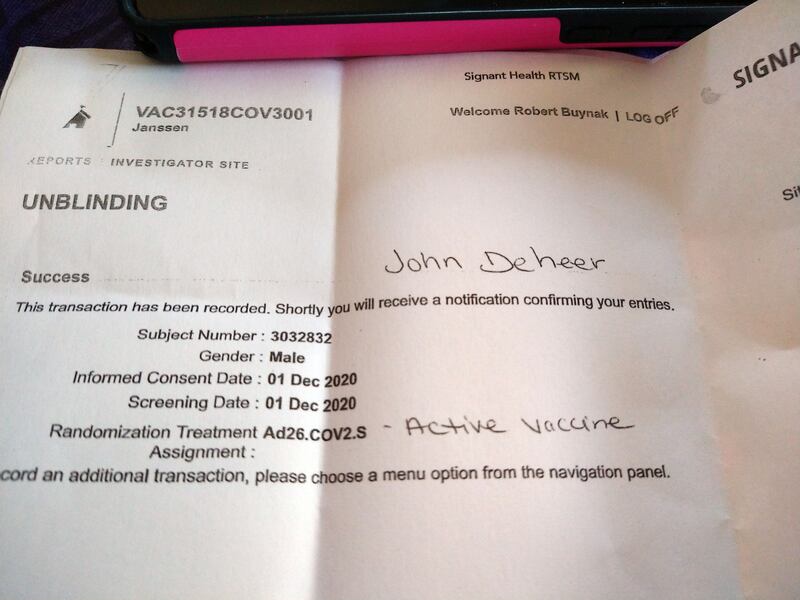 Signant Health RTSM
SIGNA
VAC31518COV3001
Janssen
Welcome Robert Buynak | LOG OFF
REPORTS INVESTIGATOR SITE
UNBLINDING
John Deheer
Success
This transaction has been recorded. Shortly you will receive a notification confirming your entries.
Subject Number : 3032832
Gender : Male
Informed Consent Date : 01 Dec 2020
Screening Date : 01 Dec 2020
Randomization Treatment Ad26.COV2.S - Active Vaccine
Assignment :
cord an additional transaction, please choose a menu option from the navigation panel.